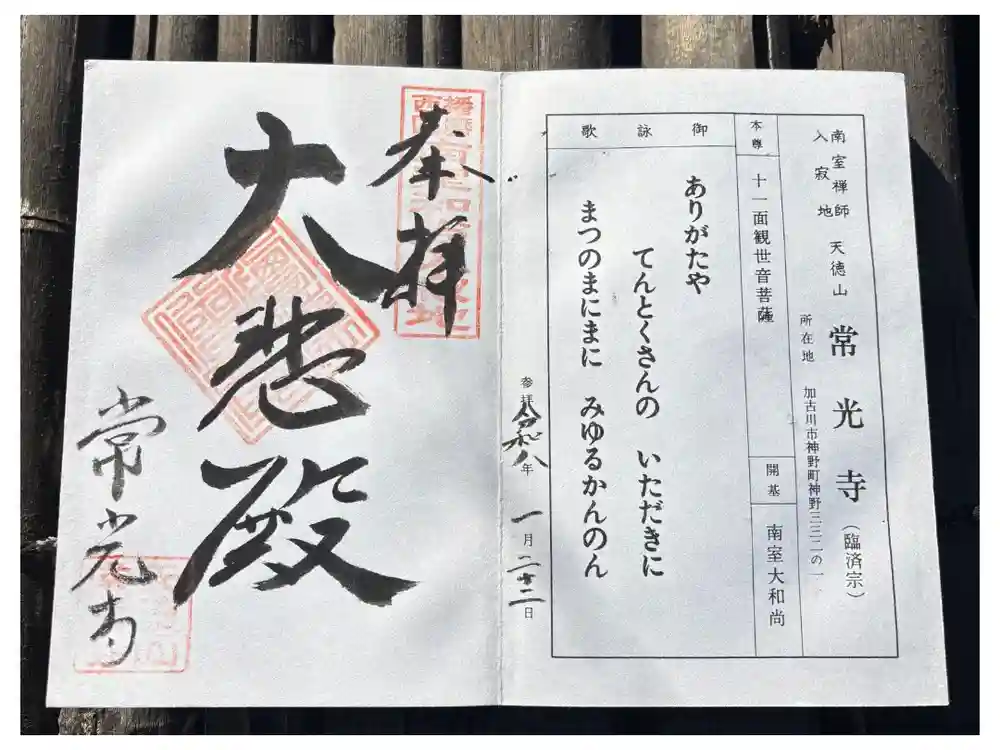 南室禅師
入寂地
天徳山
常光寺(臨済宗)
所在地 加古川市神野町神野三三二の一
本尊 十一面観世音菩薩
開基 南室大和尚
御詠歌
ありがたや
てんとくさんの いただきに
まつのまにまに みゆるかんのん
参拝 令和八年 一月二十二日
奉拝
大悲殿
常光寺